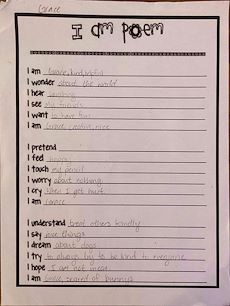 Grace
I am poem
I am Grace, kind, helpful
I wonder about the world
I hear
I see my friends
I want to have fun
I am Grace, creative, nice
I pretend
I feel happy
I touch my pencil
I worry about nothing
I cry when I get hurt
I am Grace
I understand treat others kindly
I say nice things
I dream about dogs
I try to always try to be kind to everyone
I hope I am not mean
I am Grace, scared of bunnys